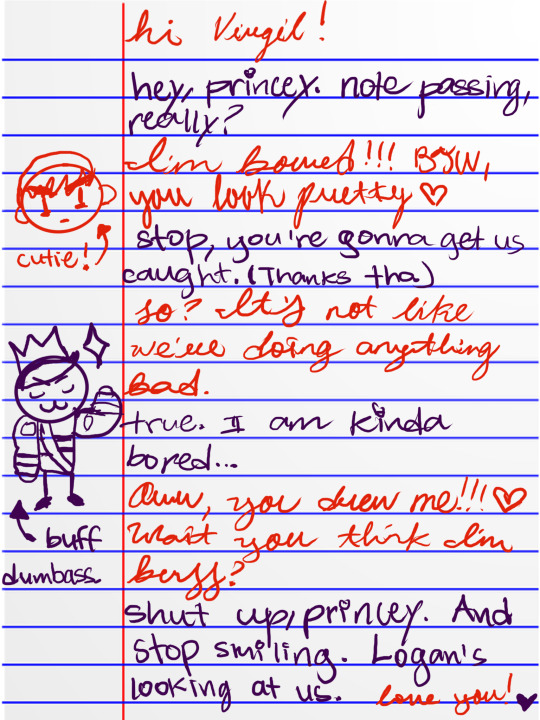 hi Virgil!
hey, princey. note passing,
really?
I'm bored!!! BTW,
you look pretty ♡
cutie!
stop, you're gonna get us
caught. (Thanks tho)
so? It's not like
we're doing anything
bad.
true. I am kinda
bored...
Aww, you drew me!!! ♡
buff
dumbass.
Wait you think I'm
buff?
shut up, princey. And
stop smiling. Logan's
looking at us.
love you! ♥